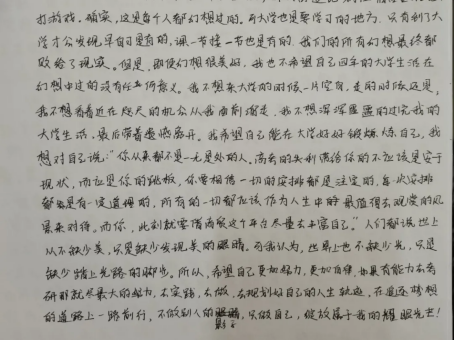 打游戏，确实，这是每个人都幻想过的。而大学也是要学习的地方，只有到了大
学才会发现，早自习是有的，课一节接一节也是有的，我们的所有幻想最终都
败给了现实。但是，即使幻想很美好，我也不希望自己四年的大学生活在
幻想中过的没有任何意义。我不想来大学的时候一片空白，走的时候还是，
我不想看着近在咫尺的机会从我面前溜走，我不想浑浑噩噩的过完我的
大学生活，最后带着遗憾离开。我希望自己能在大学好好锻炼自己，我
想对自己说："你从来都不是一无是处的人。高考的失利带给你的不应该是安于
现状，而应是你的跳板，你要相信一切的安排都是注定的，每次安排
都是有一定道理的，所有的一切都应该作为人生中的最值得去观赏的风
景来对待。而你，此刻就要借着这个平台尽量去丰富自己。"人们都说世上
从不缺少美，只是缺少发现美的眼睛。可我认为，世界上也不缺少光，只是
缺少踏上光路的脚步。所以，希望自己更加努力，更加自律，如果有能力去考
研那就尽最大的努力，去实践，去做，去规划好自己的人生轨迹，在追逐梦想
的道路上一路前行，不做别人的影子，只做自己，绽放属于我的耀眼光芒！